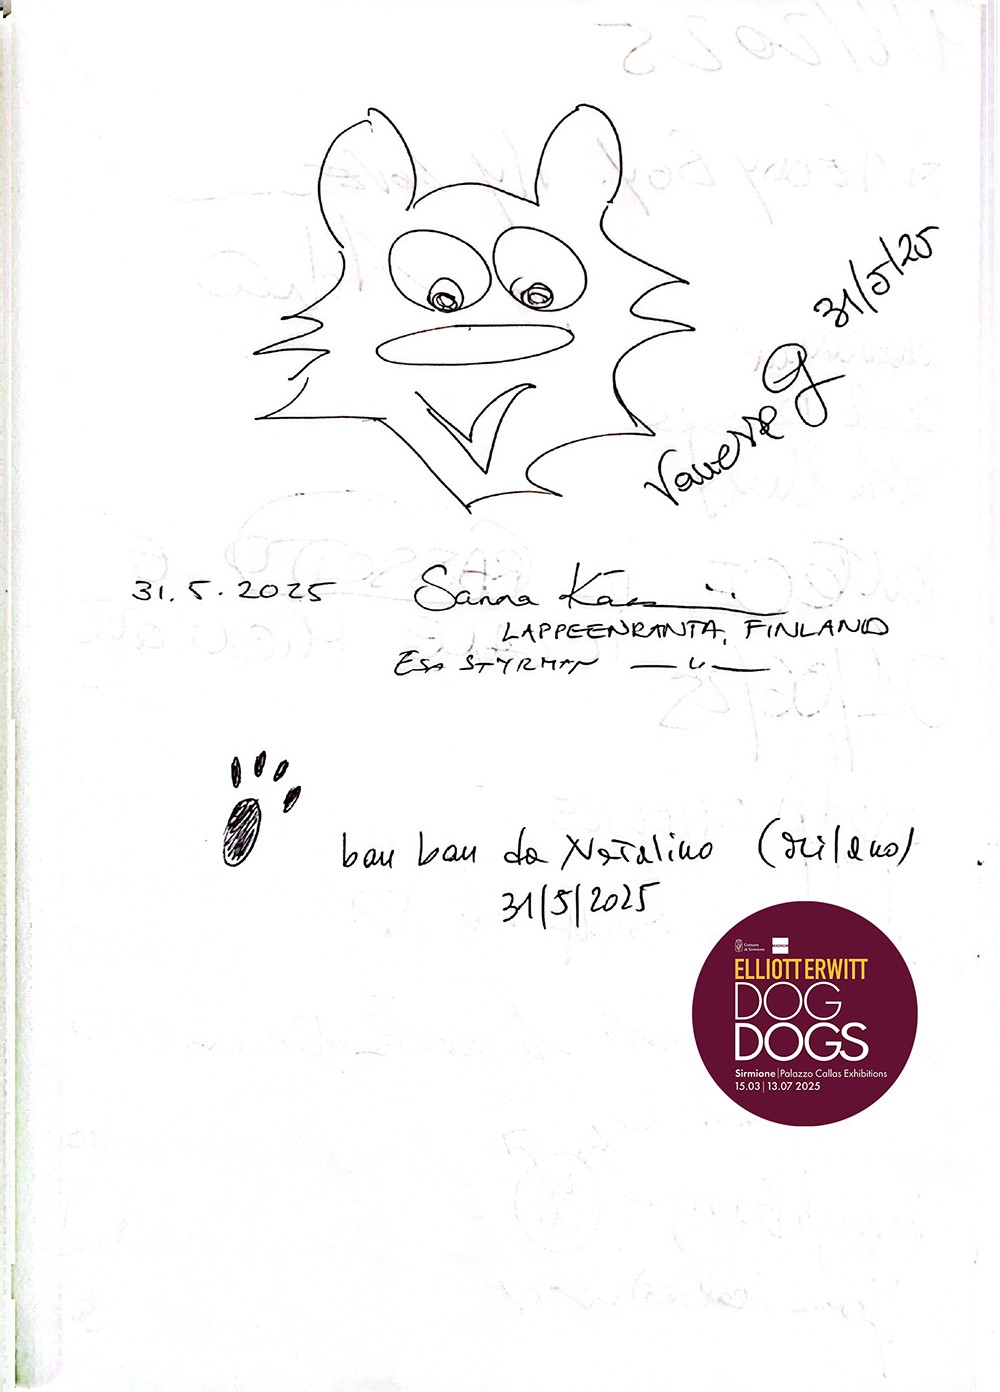 31/5/25
Vanessa G
31.5.2025 Sanna
LAPPEENRANTA, FINLAND
ESA STYRMAN — " —
bau bau da Natalino (Milano)
31/5/2025
Comune di Sirmione
MAGNUM
ELLIOTT ERWITT
DOG
DOGS
Sirmione | Palazzo Callas Exhibitions
15.03 | 13.07 2025